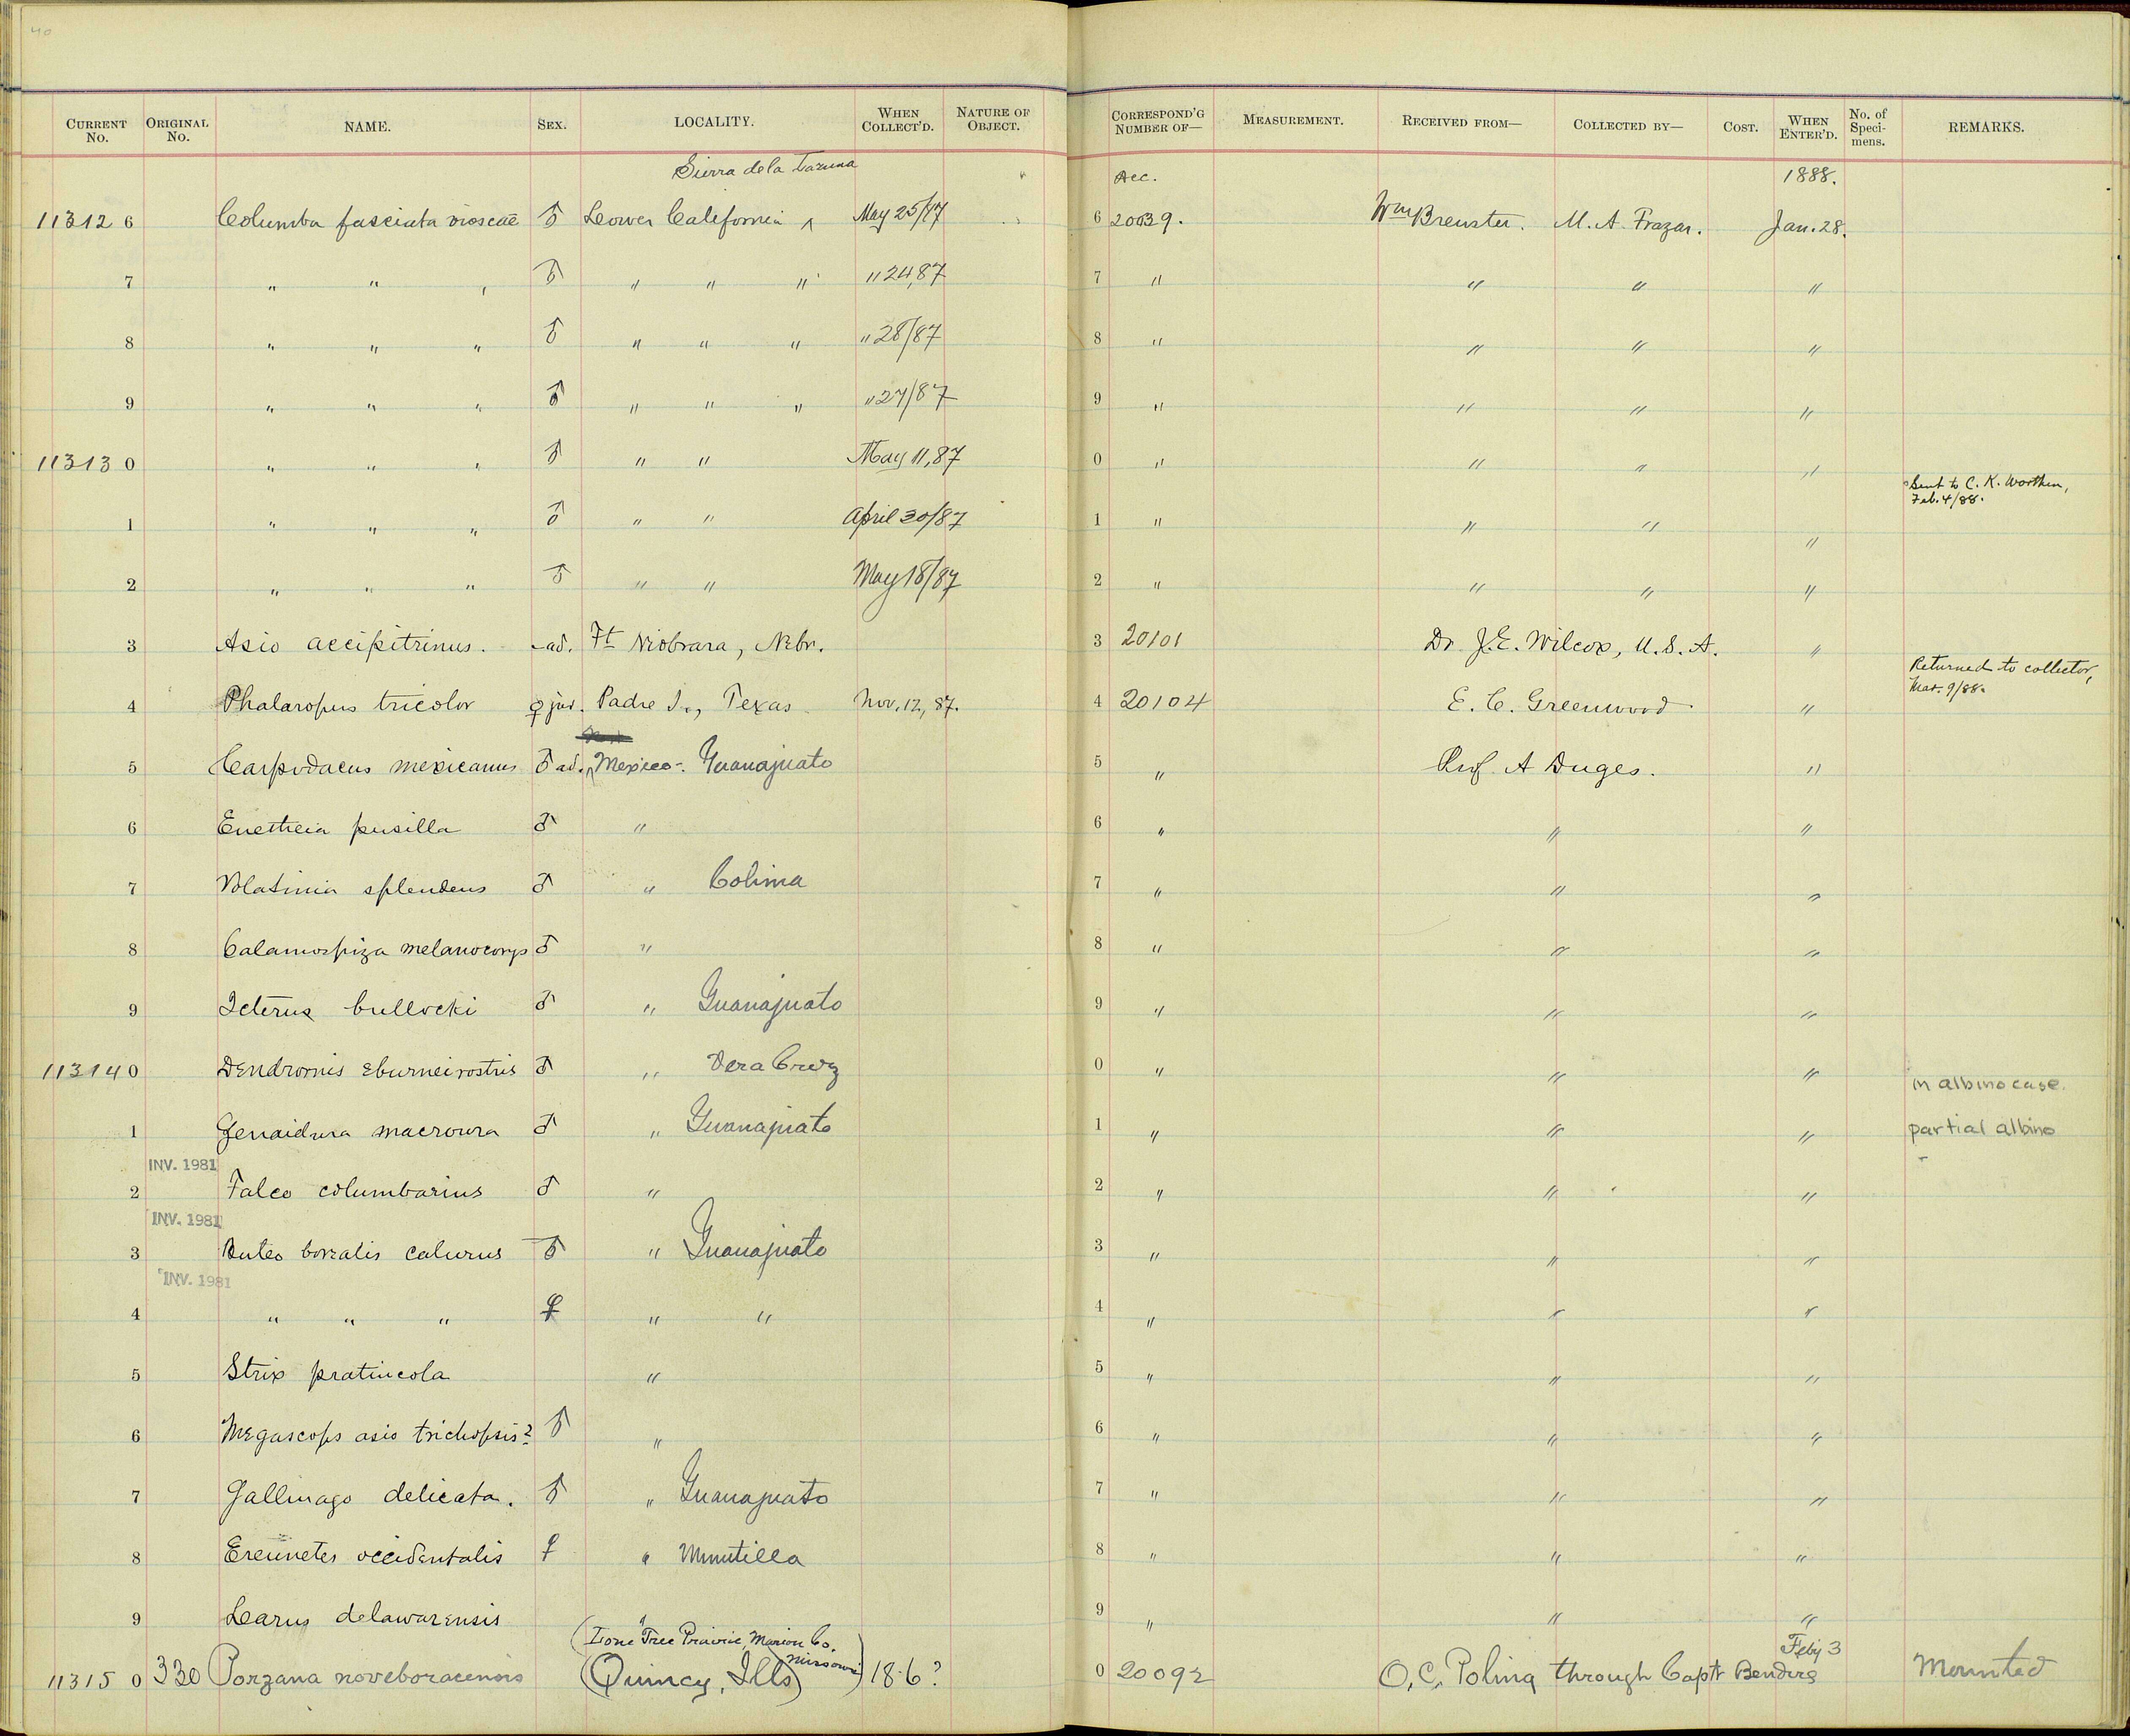 40
CURRENT No. ORIGINAL No. NAME. SEX. LOCALITY. WHEN COLLECT'D. NATURE OF OBJECT. CORRESPOND'G NUMBER OF— MEASUREMENT. RECEIVED FROM— COLLECTED BY— COST. WHEN ENTER'D. No. of Speci-mens. REMARKS.
Sierra de la Acc. 1888.
11312 6 Columba fasciata vioscae ♂ Lower California ^ May 25/87 6 20039. Wm Brewster. M. A. Frazar. Jan. 28.
7 " " " ♂ " " " " 24, 87 7 " " " "
8 " " " ♂ " " " " 28/87 8 " " " "
9 " " " ♂ " " " " 27/87 9 " " " "
11313 0 " " " ♂ " " May 11, 87 0 " " " "
Sent to C. K. Worthen,
Feb. 4/88.
1 " " " ♂ " " April 30/87 1 " " " "
2 " " " ♂ " " May 18/87 2 " " " "
3 Asio accipitrinus. - ad. Ft Niobrara, Nebr. 3 20101 Dr. J. E. Wilcox, U. S. A. "
Returned to collector,
Mar. 9/88.
4 Phalaropus tricolor ♀ juv. Padre I., Texas Nov. 12, 87. 4 20104 E. C. Greenwood "
5 Carpodacus mexicanus ♂ ad. ^ Mexico-. Guanajuato 5 " Prof. A Duges. "
6 Euetheia pusilla ♂ " 6 " " "
7 Volatinia splendens ♂ " Colima 7 " " "
8 Calamospiza melanocorys ♂ " 8 " " "
9 Icterus bullocki ♂ " Guanajuato 9 " " "
11314 0 Dendrornis eburneirostris ♂ " Vera Cruz 0 " " "
in albino case.
1 Zenaidura macroura ♂ " Guanajuato 1 " " " partial albino
INV. 1981
2 Falco columbarius ♂ " 2 " " "
INV. 1981
3 Buteo borealis calurus ♂ " Guanajuato 3 " " "
INV. 1981
4 " " " ♀ " " 4 " " "
5 Strix pratincola " 5 " " "
6 Megascops asio trichopsis? ♂ " 6 " " "
7 Gallinago delicata. ♂ " Guanajuato 7 " " "
8 Ereunetes occidentalis ♀ " Minutilla 8 " " "
9 Larus delawarensis " 9 " " "
(Lone Tree Prairie, Marion Co. Missouri) Feby 3
11315 0 330 Porzana noveboracensis (Quincy, Ills) 18·6? 0 20092 O. C. Poling through Capt Bendire Mounted